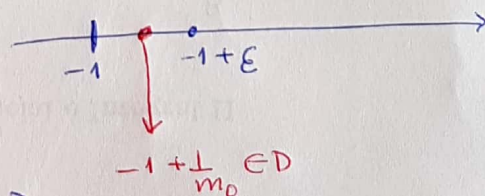 -1 -1+ε
-1+1/m₀ ∈D